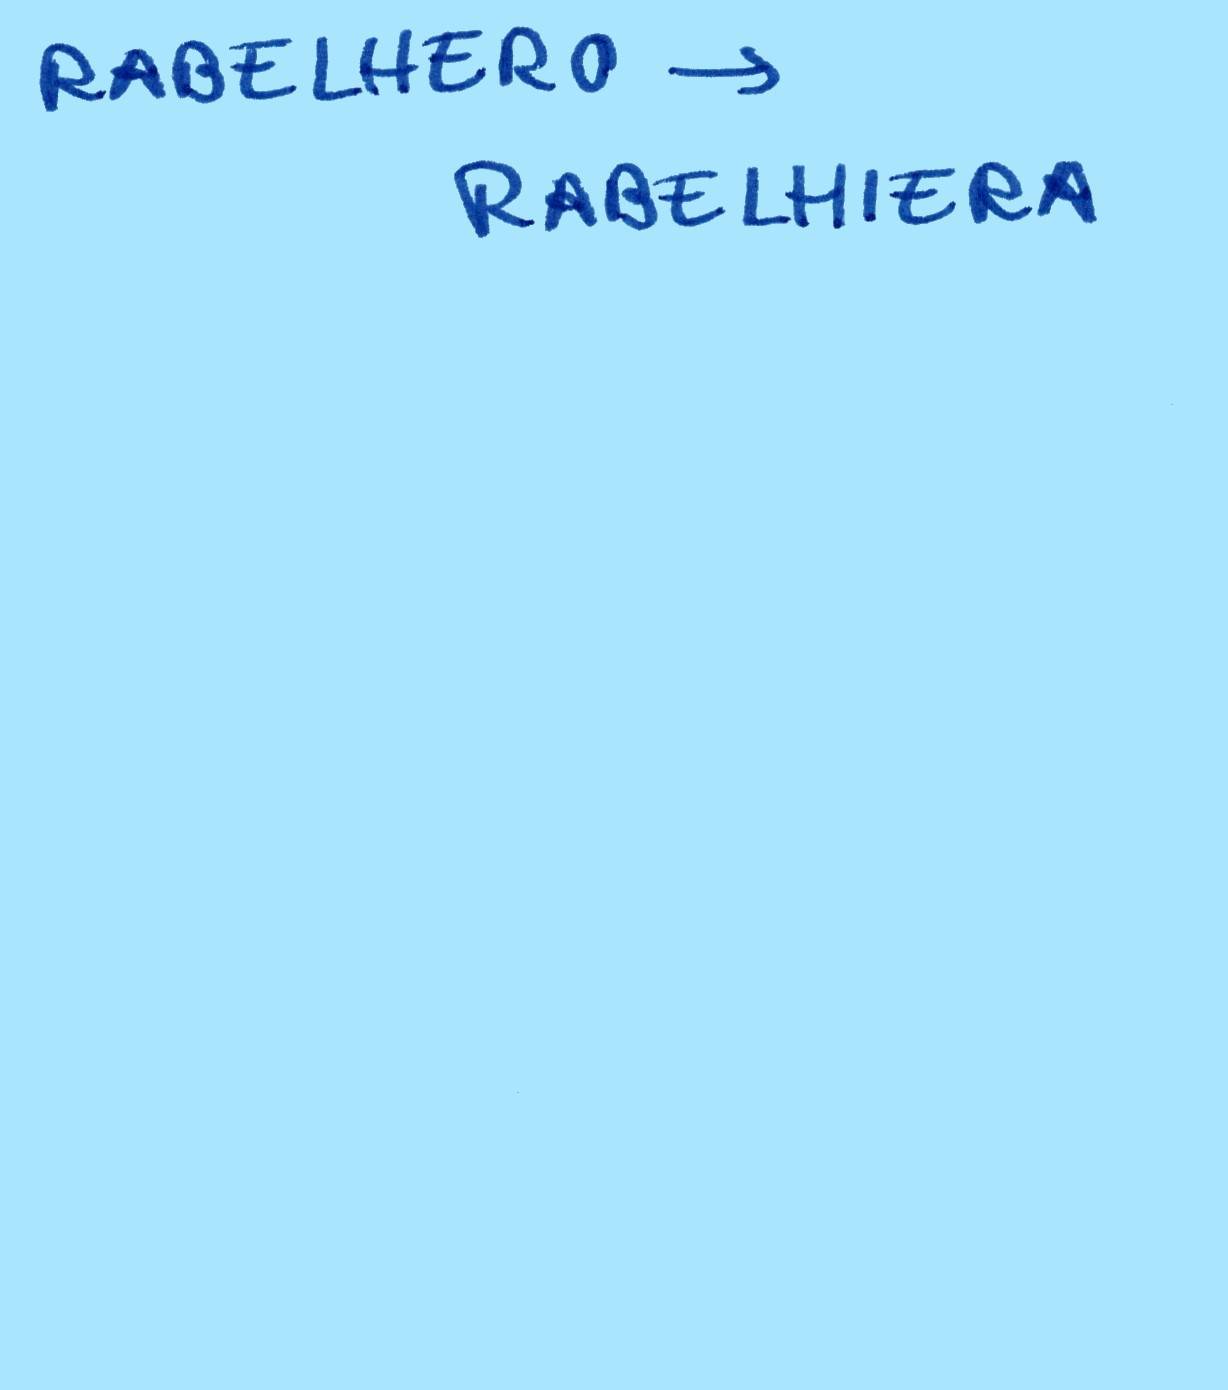 RABELHERO →
RABELHIERA